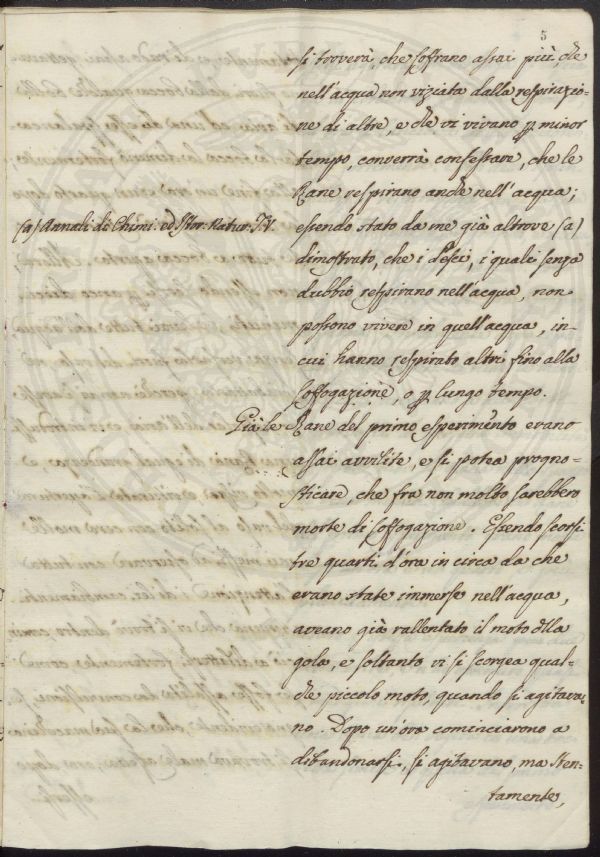 5
si troverà, che soffrano assai più, che
nell'acqua non viziata dalla respirazio=
ne di altre, e che vi vivano p minor
tempo, converrà confessare, che le
Rane respirano anche nell'acqua;
essendo stato da me già altrove (a)
(a) Annali di Chimi: ed Istor: Natur: T.V.
dimostrato, che i Pesci, i quali senza
dubbio respirano nell'acqua, non
possono vivere in quell'acqua, in=
cui hanno respirato altri fino alla
soffogazione, o p lungo tempo.
Già le Rane del primo esperimento erano
assai avvilite, e si potea progno=
sticare, che fra non molto sarebbero
morte di soffogazione. Essendo scorsi
tre quarti d'ora in circa da che
erano state immerse nell'acqua,
aveano già rallentato il moto dlla
gola, e soltanto vi si scorgea qual=
che piccolo moto, quando si agitava=
no. Dopo un'ora cominciarono a
abbandonarsi, si agitavano, ma sten=
tamente,